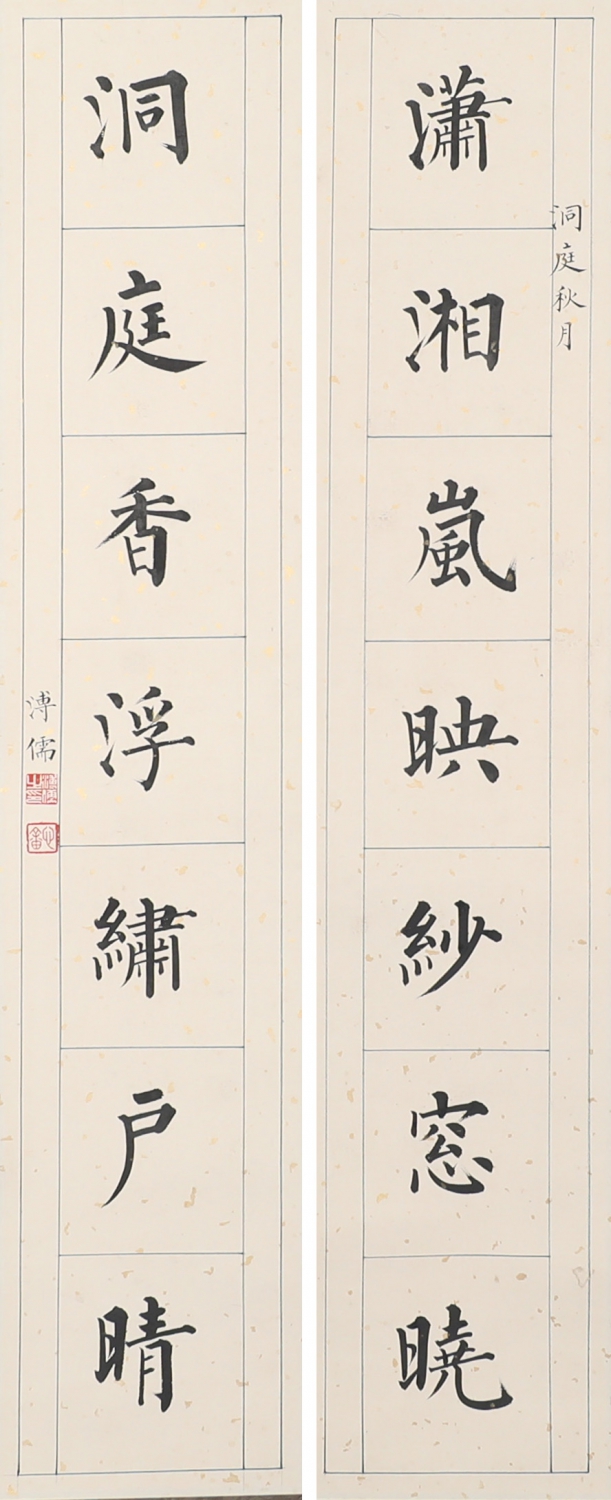 洞庭秋月
瀟湘嵐映紗窓曉
洞庭香浮繡户晴
溥儒